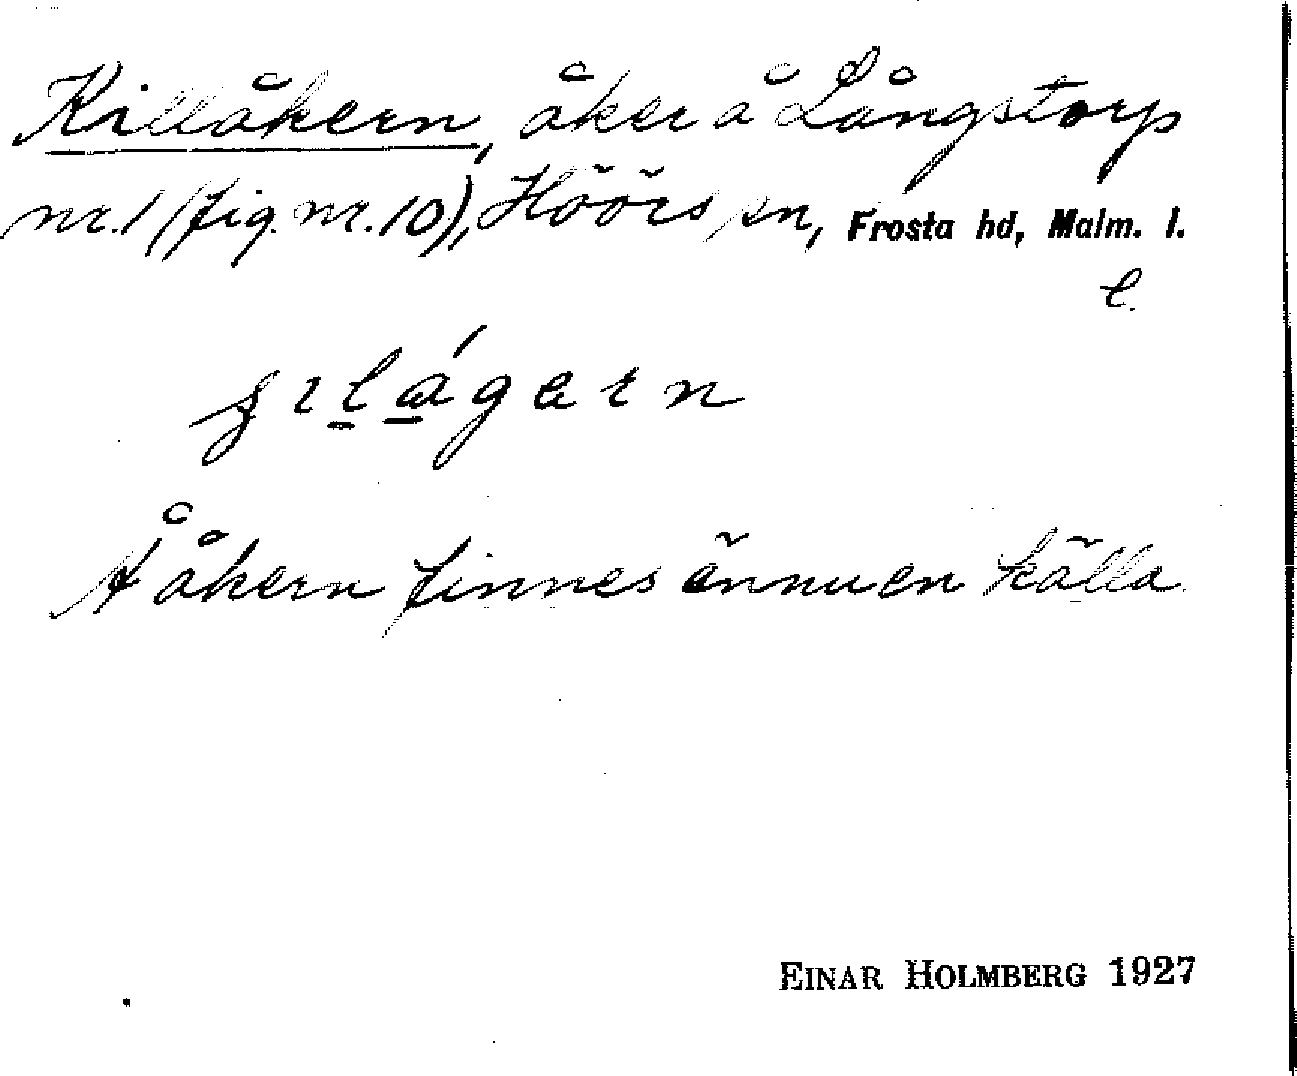 Killåkern, åker å Långstorp
nr. 1 (fig. nr. 10), Höörs sn, Frosta hd, Malm. l.
l.
Å åkern finnes ännu en källa.
EINAR HOLMBERG 1927